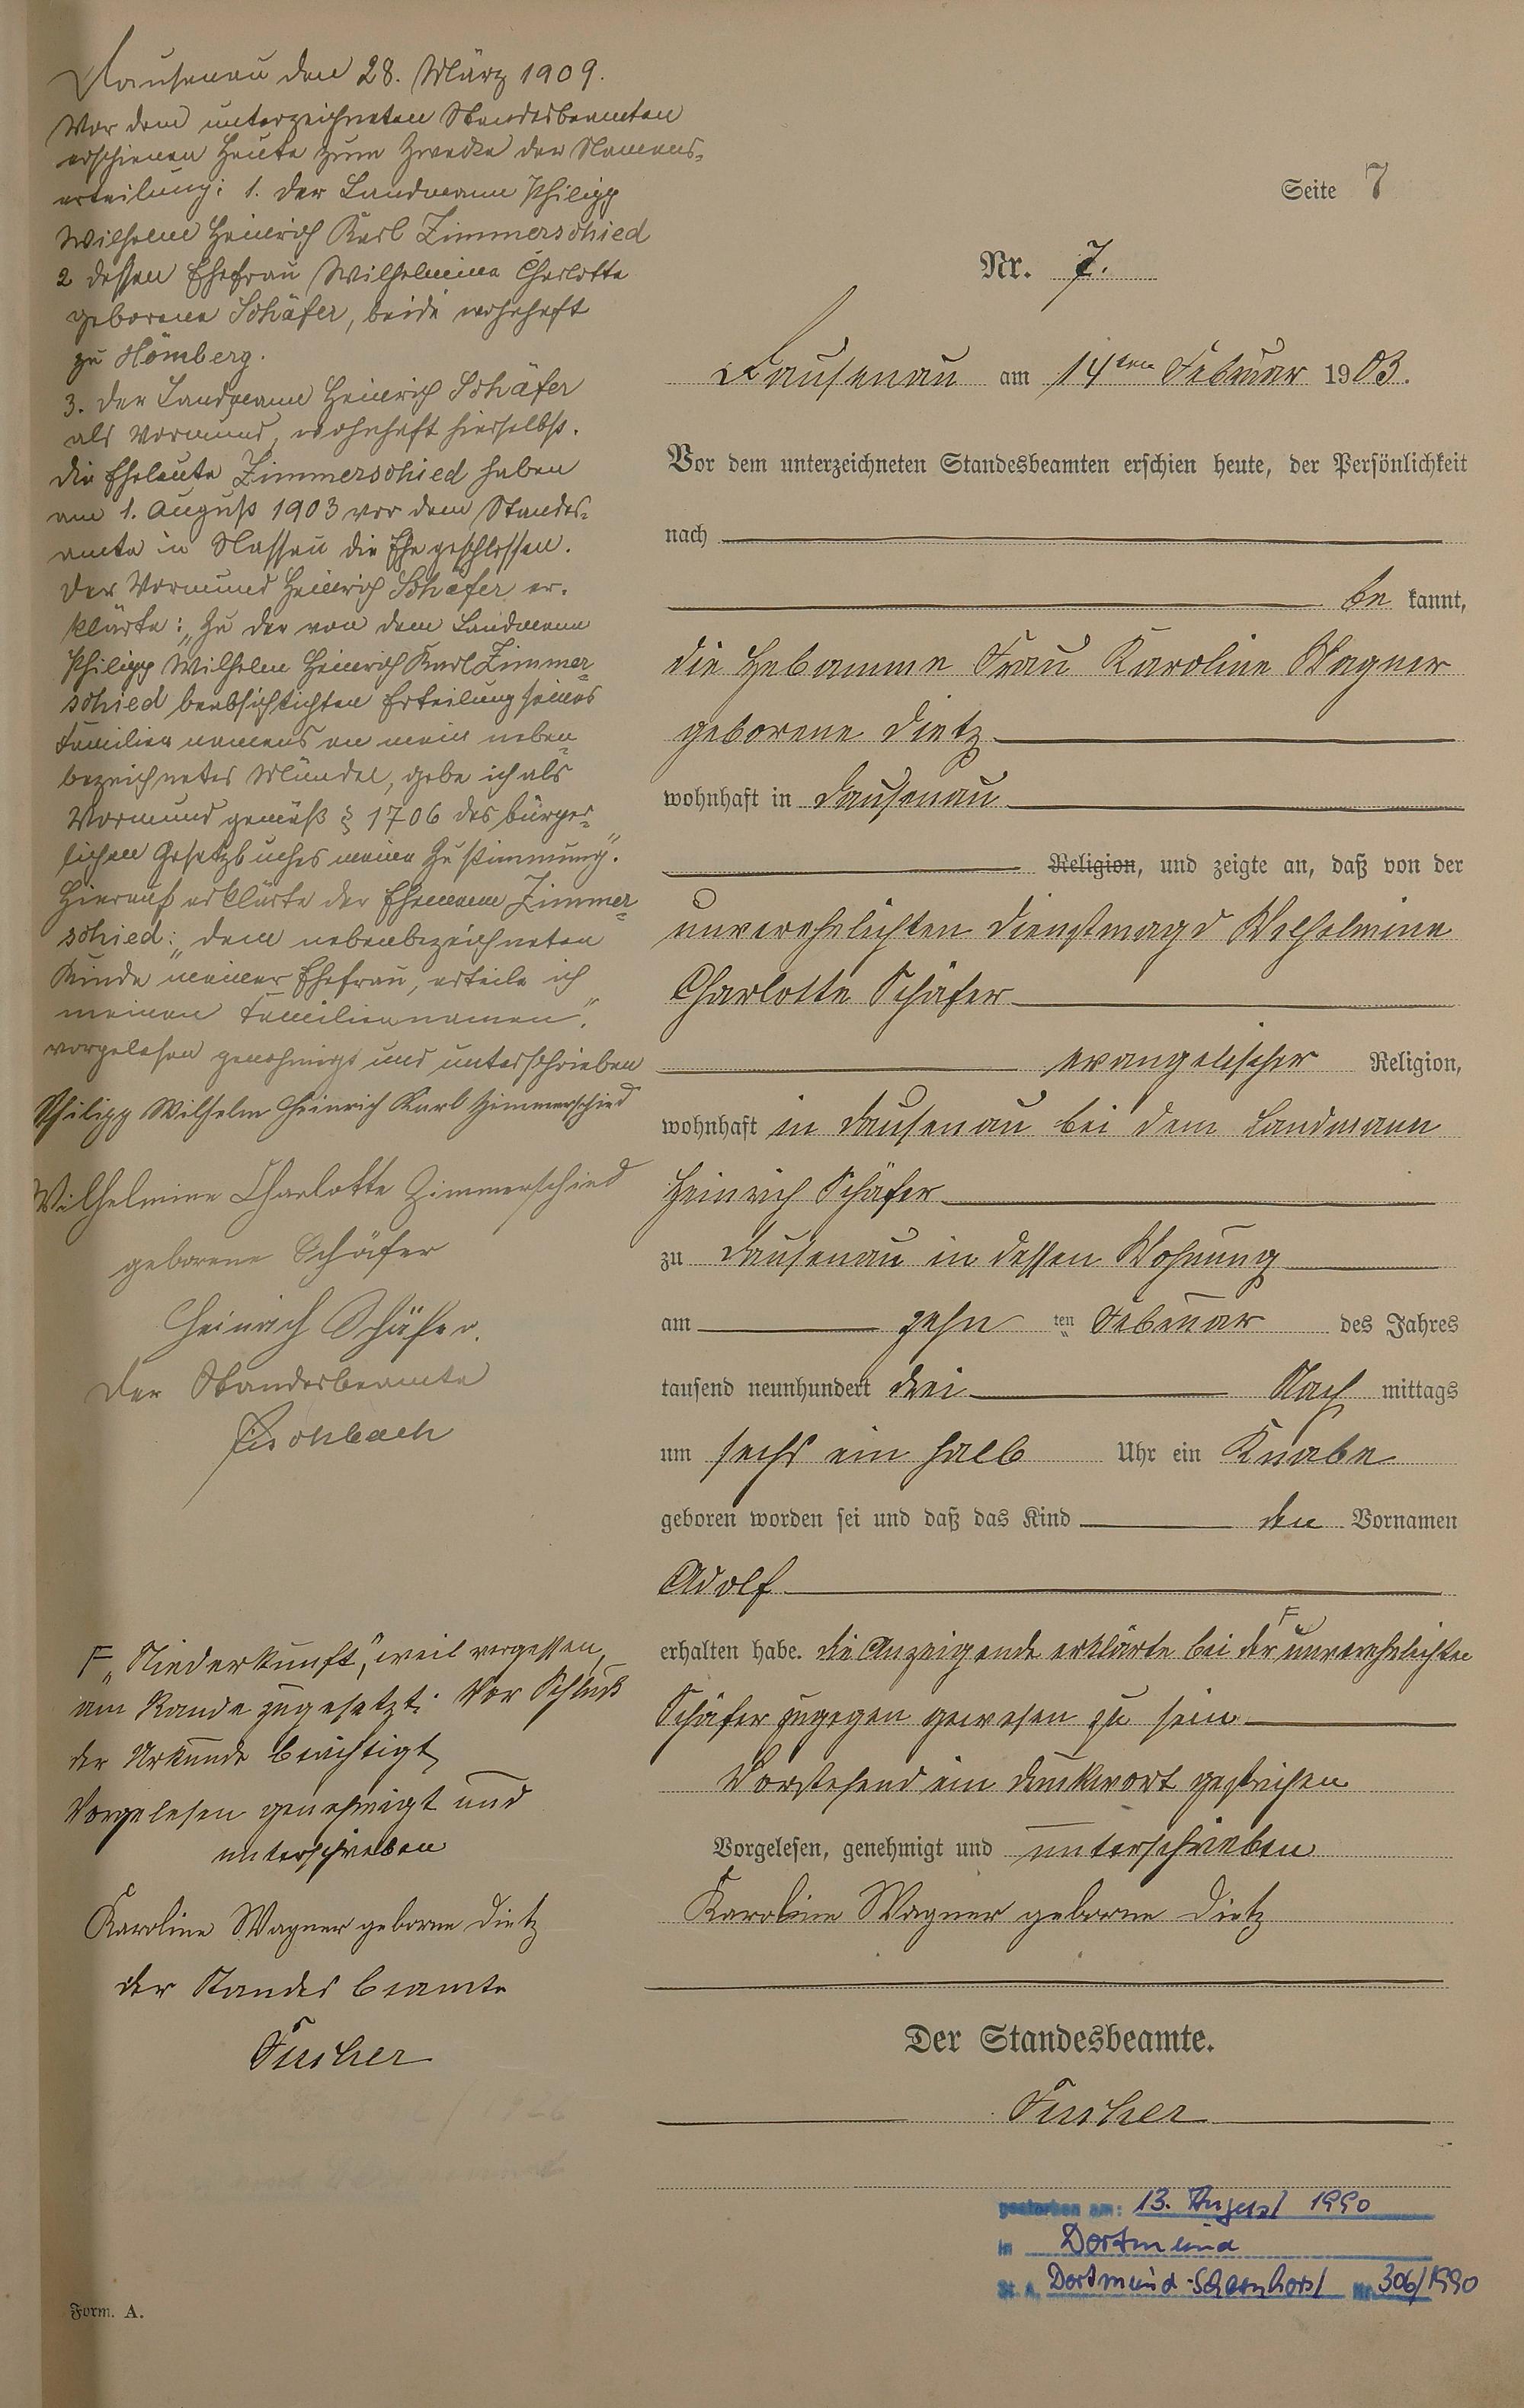 Seite 7
Nr. 7.
Dausenau am 14ten Februar 1903.
Vor dem unterzeichneten Standesbeamten erschien heute, der Persönlichkeit
nach
be kannt,
die Hebamme Frau Karoline Wagner
geborene Dietz
wohnhaft in Dausenau
Religion, und zeigte an, daß von der
unverehelichten Dienstmagd Wilhelmine
Charlotte Schäfer
evangelischer Religion,
wohnhaft in Dausenau bei dem Landmann
Heinrich Schäfer
zu Dausenau in dessen Wohnung
am zehn ten Februar des Jahres
tausend neunhundert drei Nach mittags
um sechs ein halb Uhr ein Knabe
geboren worden sei und daß das Kind den Vornamen
Adolf
erhalten habe. Die Anzeigende erklärte bei der F unverehelichten
Schäfer zugegen gewesen zu sein
Vorstehend ein Druckwort gestrichen
Vorgelesen, genehmigt und unterschrieben
Karoline Wagner geborne Dietz
Der Standesbeamte.
Fischer
gestorben am: 13. August 1990
in Dortmund
St. A. Dortmund-Scharnhorst Nr. 306/1990
Dausenau den 28. März 1909.
Vor dem unterzeichneten Standesbeamten
erschienen heute zum Zwecke der Namens-
erteilung: 1. der Landmann Philipp
Wilhelm Heinrich Karl Zimmerschied
2 dessen Ehefrau Wilhelmine Charlotte
geborene Schäfer, beide wohnhaft
zu Hömberg.
3. der Landmann Heinrich Schäfer
als Vormund, wohnhaft hierselbst.
Die Eheleute Zimmerschied haben
am 1. August 1903 vor dem Standes-
amte in Nassau die Ehe geschlossen.
Der Vormund Heinrich Schäfer er-
klärte: „Zu der von dem Landmann
Philipp Wilhelm Heinrich Karl Zimmer-
schied beabsichtichten Erteilung seines
Familiennamens an mein neben-
bezeichnetes Mündel, gebe ich als
Vormund gemäß § 1706 des bürger-
lichen Gesetzbuches meine Zustimmung".
Hierauf erklärte der Ehemann Zimmer-
schied: „dem nebenbezeichneten
Kinde meiner Ehefrau, erteile ich
meinen Familiennamen".
vorgelesen genehmigt und unterschrieben
Philipp Wilhelm Heinrich Karl Zimmerschied
Wilhelmine Charlotte Zimmerschied
geborene Schäfer
Heinrich Schäfer.
Der Standesbeamte
Fischbach
F „Niederkunft", weil vergessen,
am Rande zugesetzt. Vor Schluß
der Urkunde berichtigt,
Vorgelesen genehmigt und
unterschrieben
Karoline Wagner geborne Dietz
der Standesbeamte
Fischer
Form. A.